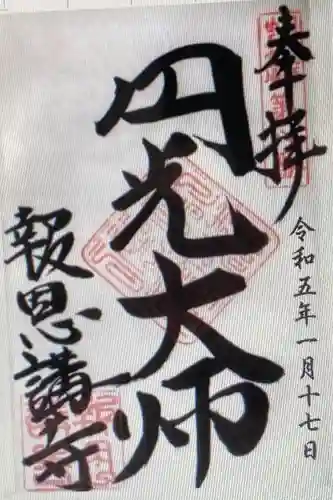 奉拝
円光大师
令和五年一月十七日
報恩講寺